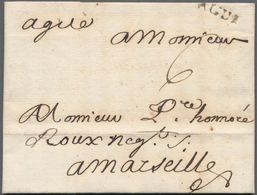 AGDE
agde
a Monsieur
6
Monsieur P.re honnoré
Roux neg.t
a Marseille